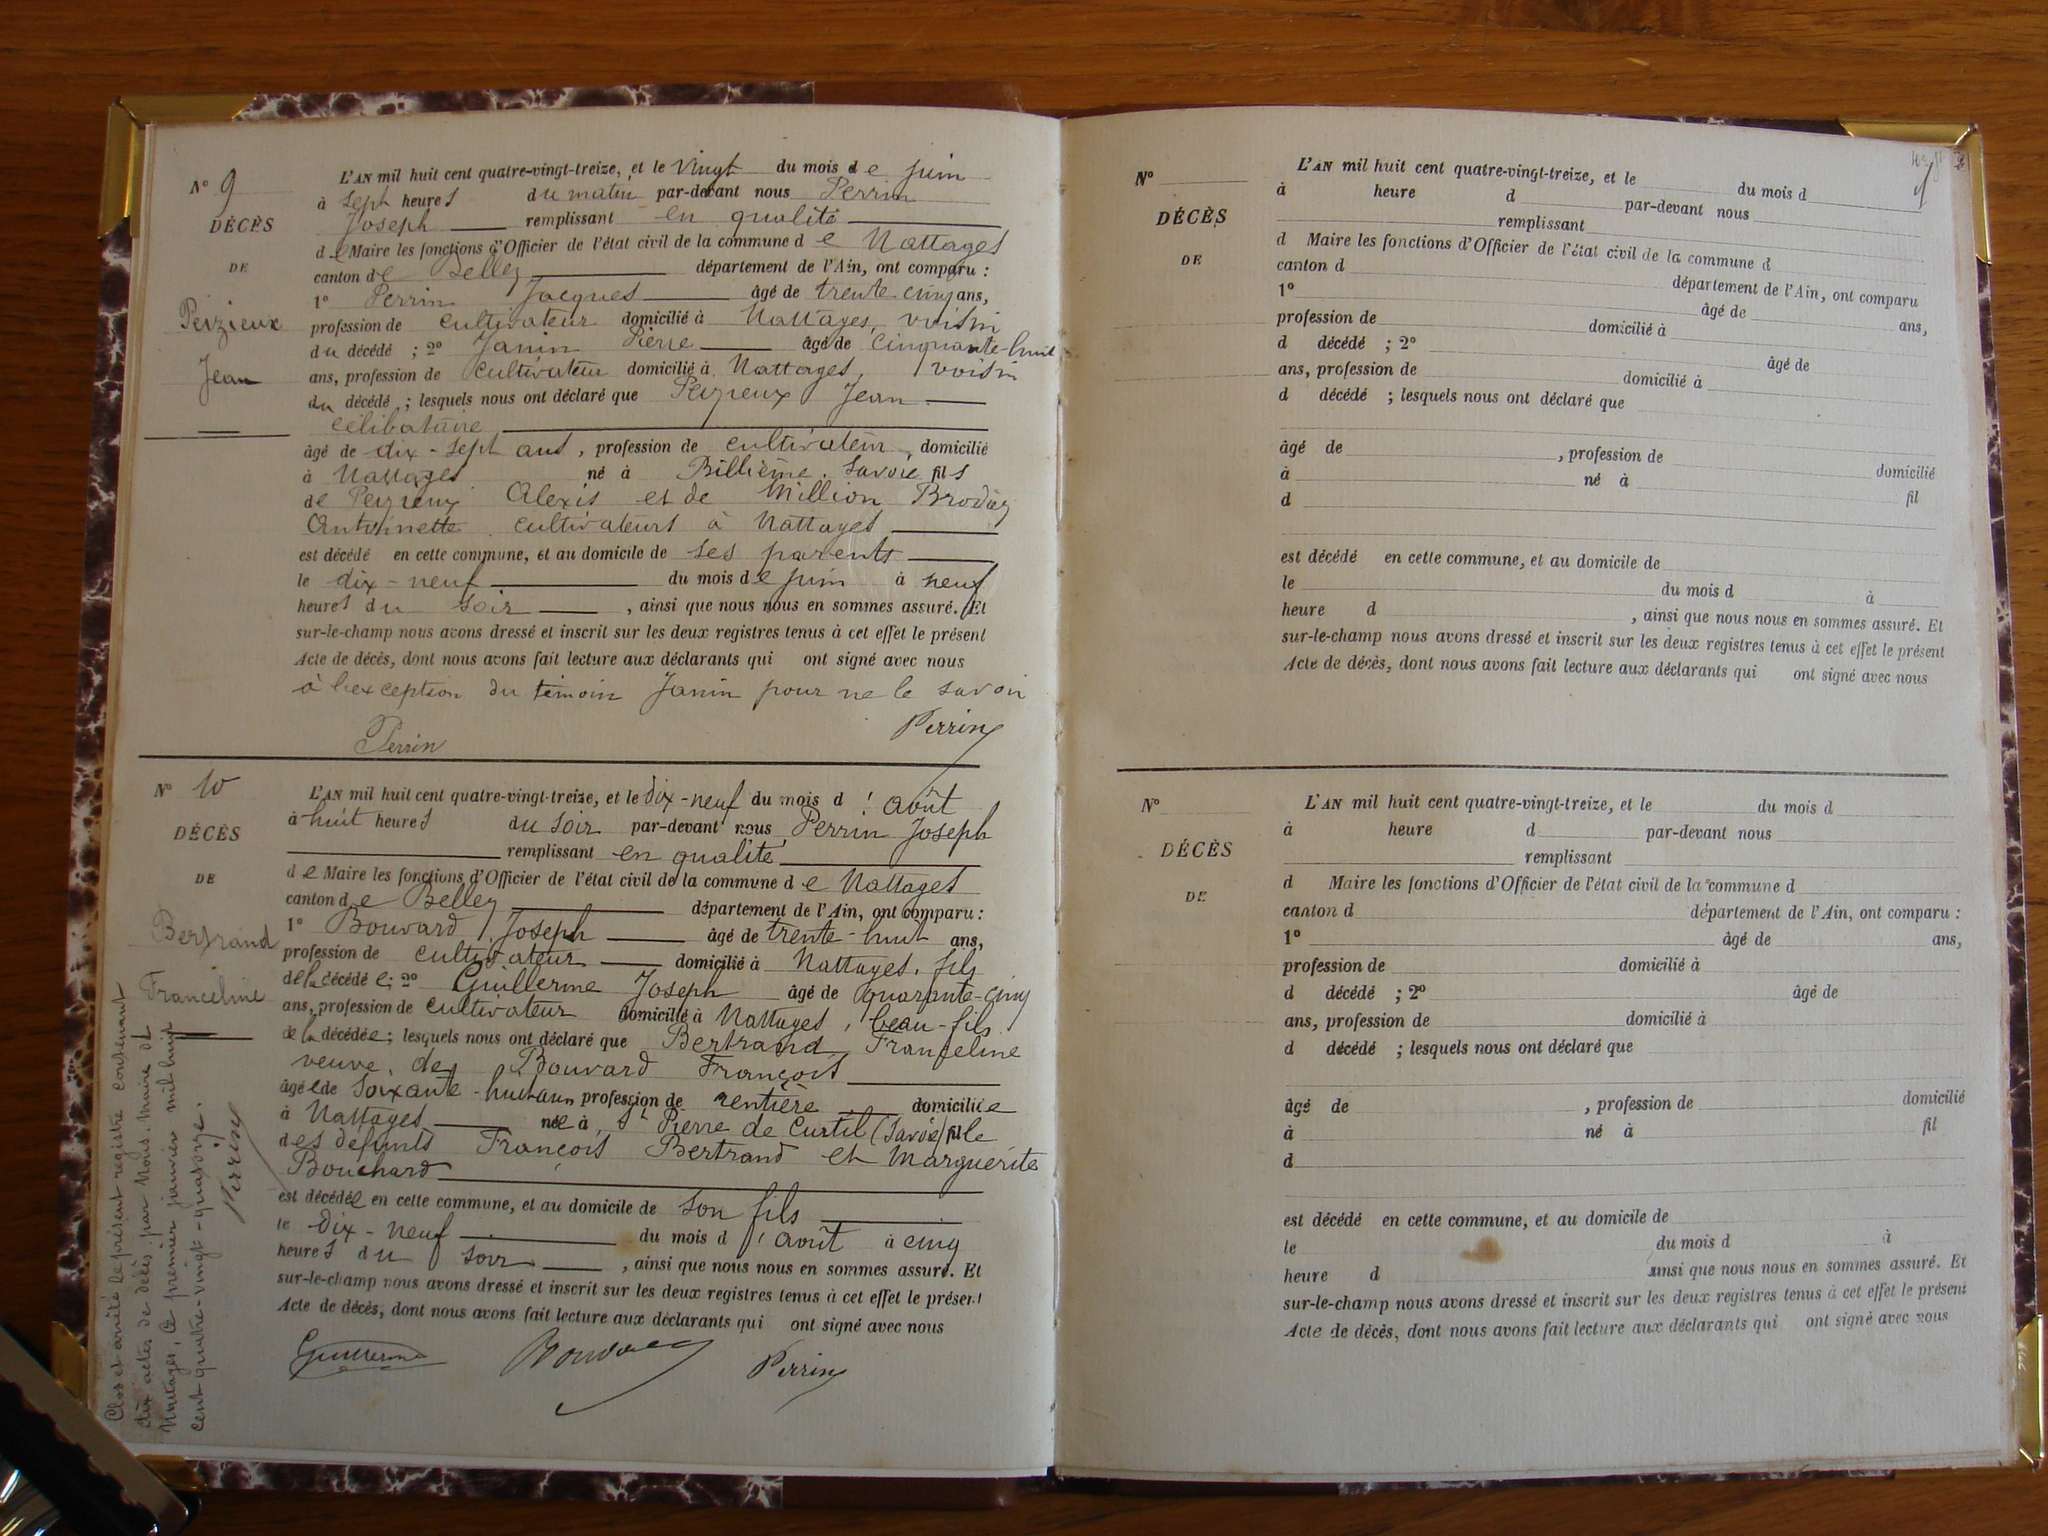 N° 9
DÉCÈS
DE
Peizieux
Jean
L'AN mil huit cent quatre-vingt-treize, et le vingt du mois de juin
à sept heures du matin par-devant nous Perrin
Joseph remplissant en qualité
de Maire les fonctions d'Officier de l'état civil de la commune de Nattages
canton de Belley département de l'Ain, ont comparu :
1° Perrin Jacques âgé de trente cinq ans,
profession de cultivateur domicilié à Nattages, voisin
du décédé ; 2° Janin Pierre âgé de cinquante-huit
ans, profession de cultivateur domicilié à Nattages, voisin
du décédé ; lesquels nous ont déclaré que Peizieux Jean
célibataire
âgé de dix-sept ans, profession de cultivateur, domicilié
à Nattages né à Billième, Savoie fils
de Peizieux Alexis et de Million Brodaz
Antoinette cultivateurs à Nattages
est décédé en cette commune, et au domicile de ses parents
le dix-neuf du mois de juin à neuf
heures du soir, ainsi que nous nous en sommes assuré. Et
sur-le-champ nous avons dressé et inscrit sur les deux registres tenus à cet effet le présent
Acte de décès, dont nous avons fait lecture aux déclarants qui ont signé avec nous
à l'exception du témoin Janin pour ne le savoir
Perrin
Perrin
N° 10
DÉCÈS
DE
Bertrand
Franceline
L'AN mil huit cent quatre-vingt-treize, et le dix-neuf du mois d'août
à huit heures du soir par-devant nous Perrin Joseph
remplissant en qualité
de Maire les fonctions d'Officier de l'état civil de la commune de Nattages
canton de Belley département de l'Ain, ont comparu :
1° Bouvard Joseph âgé de trente-huit ans,
profession de cultivateur domicilié à Nattages, fils
de la décédée ; 2° Guillerme Joseph âgé de quarante-cinq
ans, profession de cultivateur domicilié à Nattages, beau-fils
de la décédée ; lesquels nous ont déclaré que Bertrand Franceline
veuve de Bouvard François
âgée de soixante-huit ans profession de rentière domiciliée
à Nattages née à St Pierre de Curtil (Savoie) fille
des défunts François Bertrand et Marguerite
Bouchard
est décédée en cette commune, et au domicile de son fils
le dix-neuf du mois d'août à cinq
heures du soir, ainsi que nous nous en sommes assuré. Et
sur-le-champ nous avons dressé et inscrit sur les deux registres tenus à cet effet le présent
Acte de décès, dont nous avons fait lecture aux déclarants qui ont signé avec nous
Guillerme Bouvard Perrin
Clos et arrêté le présent registre contenant
dix actes de décès par Nous, Maire de
Nattages, le premier janvier mil huit
cent quatre-vingt-quatorze.
Perrin
N°
DÉCÈS
DE
L'AN mil huit cent quatre-vingt-treize, et le du mois d
à heure d par-devant nous
remplissant
d Maire les fonctions d'Officier de l'état civil de la commune d
canton d département de l'Ain, ont comparu
1° âgé de ans,
profession de domicilié à
d décédé ; 2° âgé de
ans, profession de domicilié à
d décédé ; lesquels nous ont déclaré que
âgé de , profession de domicilié
à né à fil
d
est décédé en cette commune, et au domicile de
le du mois d à
heure d , ainsi que nous nous en sommes assuré. Et
sur-le-champ nous avons dressé et inscrit sur les deux registres tenus à cet effet le présent
Acte de décès, dont nous avons fait lecture aux déclarants qui ont signé avec nous
N°
DÉCÈS
DE
L'AN mil huit cent quatre-vingt-treize, et le du mois d
à heure d par-devant nous
remplissant
d Maire les fonctions d'Officier de l'état civil de la commune d
canton d département de l'Ain, ont comparu :
1° âgé de ans,
profession de domicilié à
d décédé ; 2° âgé de
ans, profession de domicilié à
d décédé ; lesquels nous ont déclaré que
âgé de , profession de domicilié
à né à fil
d
est décédé en cette commune, et au domicile de
le du mois d à
heure d ainsi que nous nous en sommes assuré. Et
sur-le-champ nous avons dressé et inscrit sur les deux registres tenus à cet effet le présent
Acte de décès, dont nous avons fait lecture aux déclarants qui ont signé avec nous